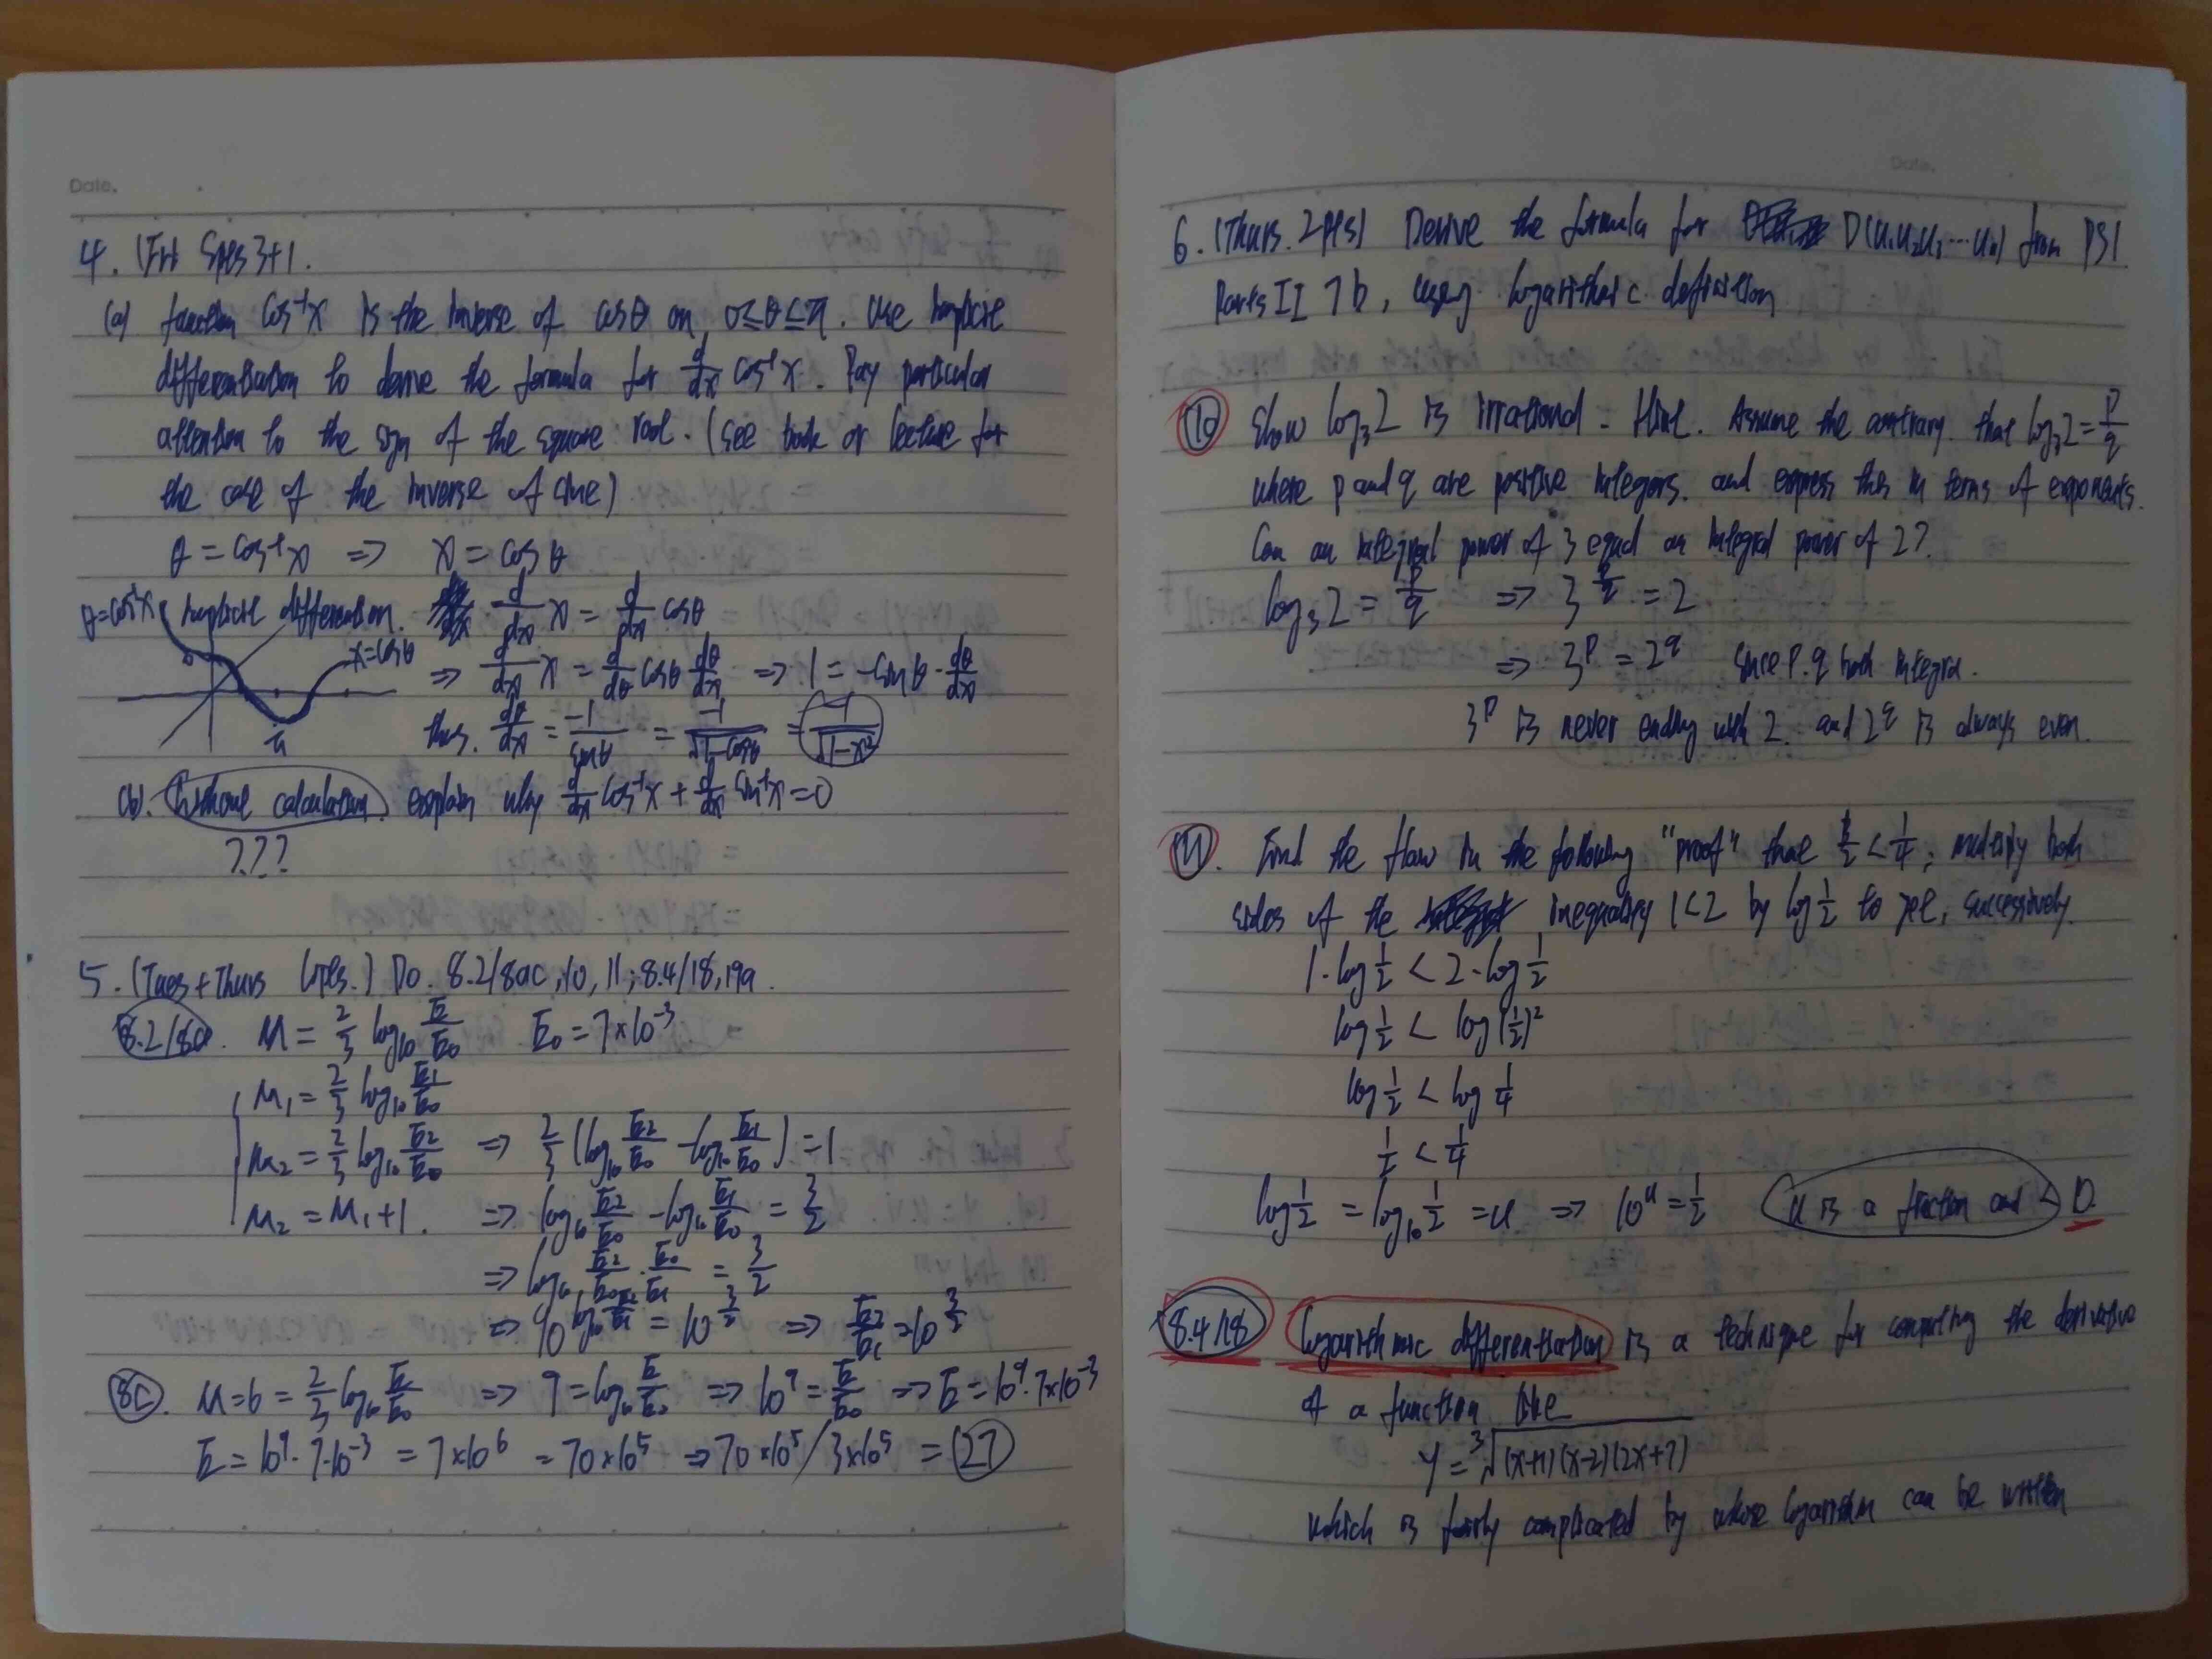 Date.
4. (Fri 5pts 3+1.
(a) function cos⁻¹x is the inverse of cosθ on 0≤θ≤π. Use implicit
differentiation to derive the formula for d/dx cos⁻¹x. Pay particular
attention to the sign of the square root. (see book or lecture for
the case of the inverse of sine)
θ = cos⁻¹x ⇒ x = cosθ
θ=cos⁻¹x implicit differentiation. d/dx x = d/dx cosθ
x=cosθ
⇒ d/dx x = d/dθ cosθ · dθ/dx ⇒ 1 = -sinθ · dθ/dx
π
thus. dθ/dx = -1/sinθ = -1/√(1-cos²θ) = -1/√(1-x²)
(b). Without calculation, explain why d/dx cos⁻¹x + d/dx sin⁻¹x = 0
???
5. (Tues + Thurs 6pts.) Do 8.2/8ac, 10, 11; 8.4/18, 19a.
8.2/8a. M = 2/3 log₁₀ E/E₀ E₀ = 7×10⁻³
M₁ = 2/3 log₁₀ E₁/E₀
M₂ = 2/3 log₁₀ E₂/E₀ ⇒ 2/3 (log₁₀ E₂/E₀ - log₁₀ E₁/E₀) = 1
M₂ = M₁ + 1. ⇒ log₁₀ E₂/E₀ - log₁₀ E₁/E₀ = 3/2
⇒ log₁₀ E₂/E₀ · E₀/E₁ = 3/2
⇒ 10^(log₁₀ E₂/E₁) = 10^(3/2) ⇒ E₂/E₁ = 10^(3/2)
8c. M = 6 = 2/3 log₁₀ E/E₀ ⇒ 9 = log₁₀ E/E₀ ⇒ 10⁹ = E/E₀ ⇒ E = 10⁹·7×10⁻³
E = 10⁹·7·10⁻³ = 7×10⁶ = 70×10⁵ ⇒ 70×10⁵/3×10⁵ = 27
Date.
6. (Thurs. 2pts) Derive the formula for D(u₁u₂u₃...uₙ) from PS1
Parts II 7b, using logarithmic definition
10 Show log₃2 is irrational. Hint. Assume the contrary that log₃2 = p/q
where p and q are positive integers. and express this in terms of exponents.
Can an integral power of 3 equal an integral power of 2?
log₃2 = p/q ⇒ 3^(p/q) = 2
⇒ 3^p = 2^q since p.q both
3^p is never ending with 2. and 2^q is always even.
11. Find the flaw in the following "proof" that 1/2 < 1/4; multiply both
sides of the inequality 1<2 by log 1/2 to get, successively.
1·log 1/2 < 2·log 1/2
log 1/2 < log(1/2)²
log 1/2 < log 1/4
1/2 < 1/4
log 1/2 = log₁₀ 1/2 = u ⇒ 10^u = 1/2 u is a fraction and < 0.
8.4/18 logarithmic differentiation is a technique for computing the derivative
of a function like
y = ³√(x+1)(x-2)(2x+7)
which is fairly complicated by whose logarithm can be written